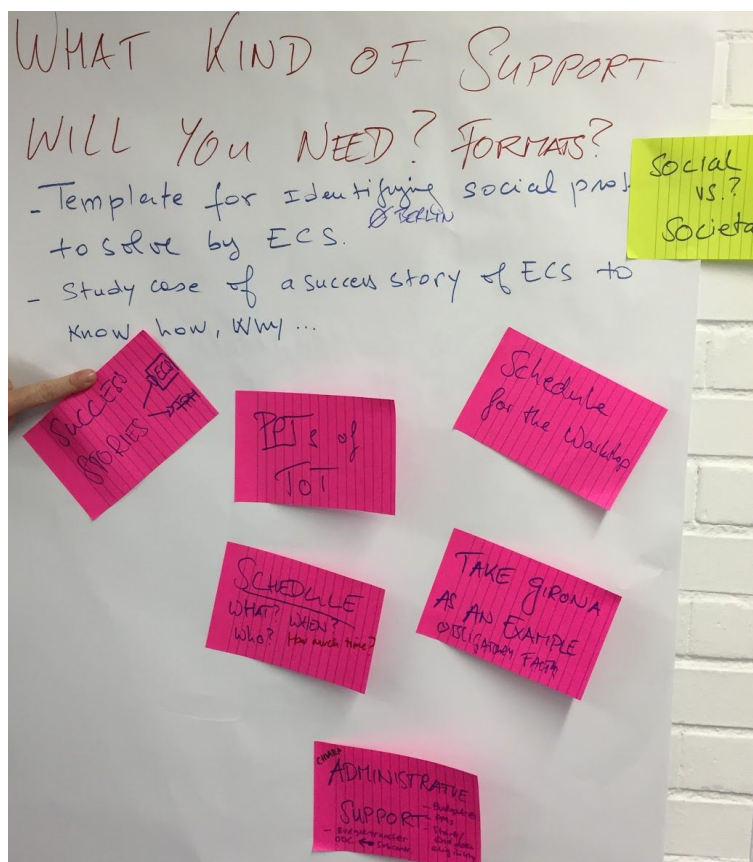 WHAT KIND OF SUPPORT
WILL YOU NEED? FORMATS?
- Template for Identifying social
to solve by ECS. Ø BERLIN
- Study case of a success story of ECS to
know how, Why ...
SOCIAL
VS.?
SOCIETA
SUCCESS
STORIES
ECS
PPTs of
ToT
Schedule
for the Workshop
SCHEDULE
WHAT? WHEN?
WHO? How much time?
TAKE GIRONA
AS AN EXAMPLE
OBLIGATORY FACTS
CHIARA
ADMINISTRATIVE
SUPPORT